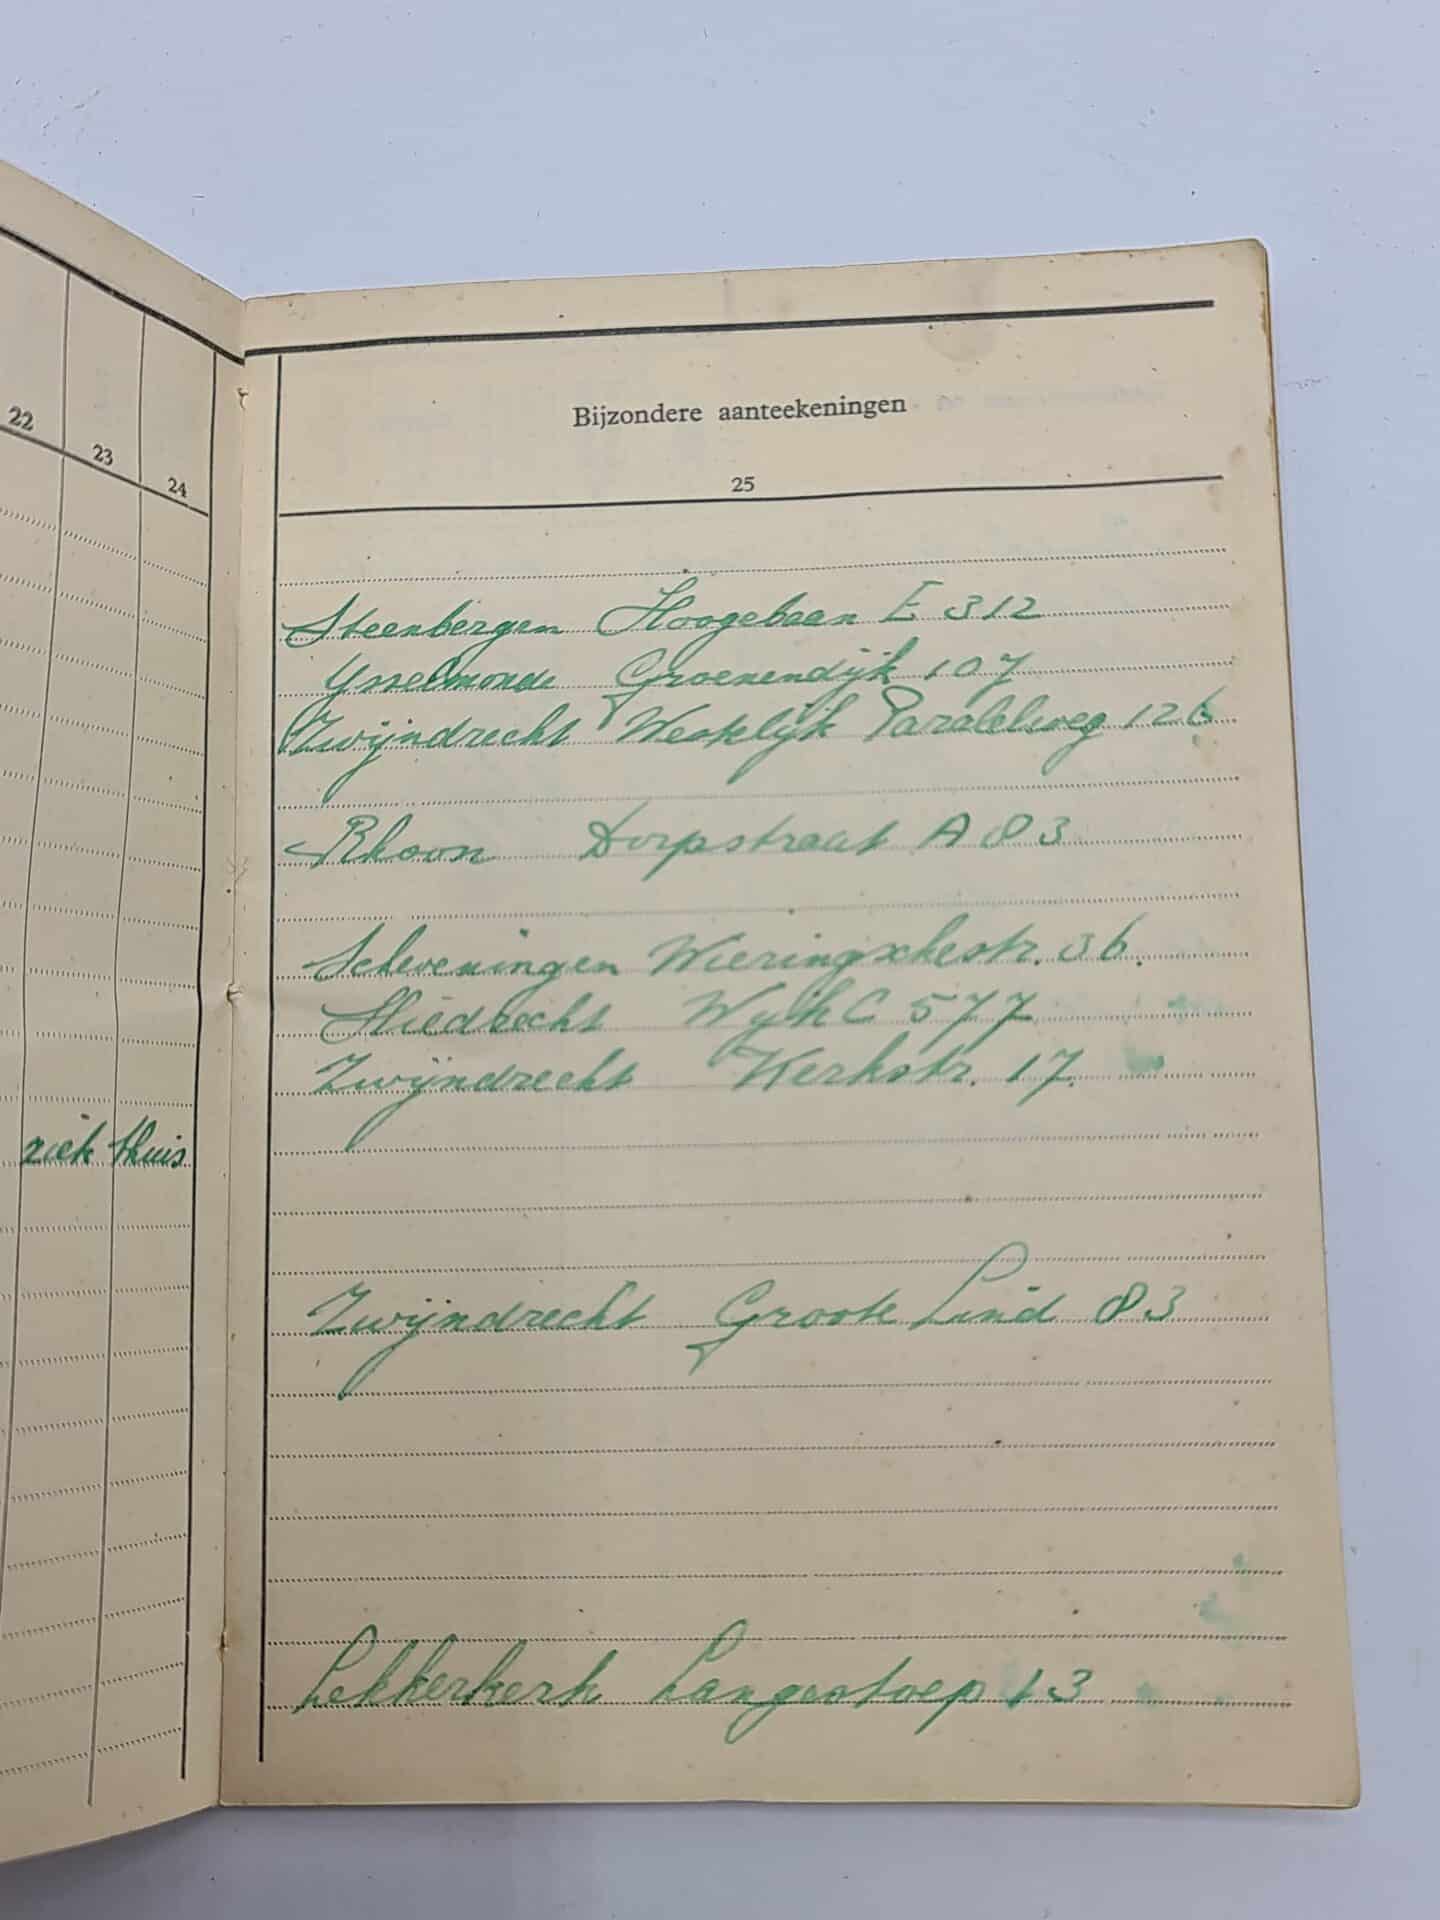 22 23 24
ziek thuis
Bijzondere aanteekeningen
25
Steenbergen Hoogebaan E 312
Ysselmonde Groenendijk 107
Zwijndrecht Westelijk Paralelweg 126
Rhoon Dorpstraat A 83
Scheveningen Wieringschestr. 36.
Sliedrecht Wijk C 577
Zwijndrecht Kerkstr. 17.
Zwijndrecht Groote Lind 83
Lekkerkerk Langestoep 13